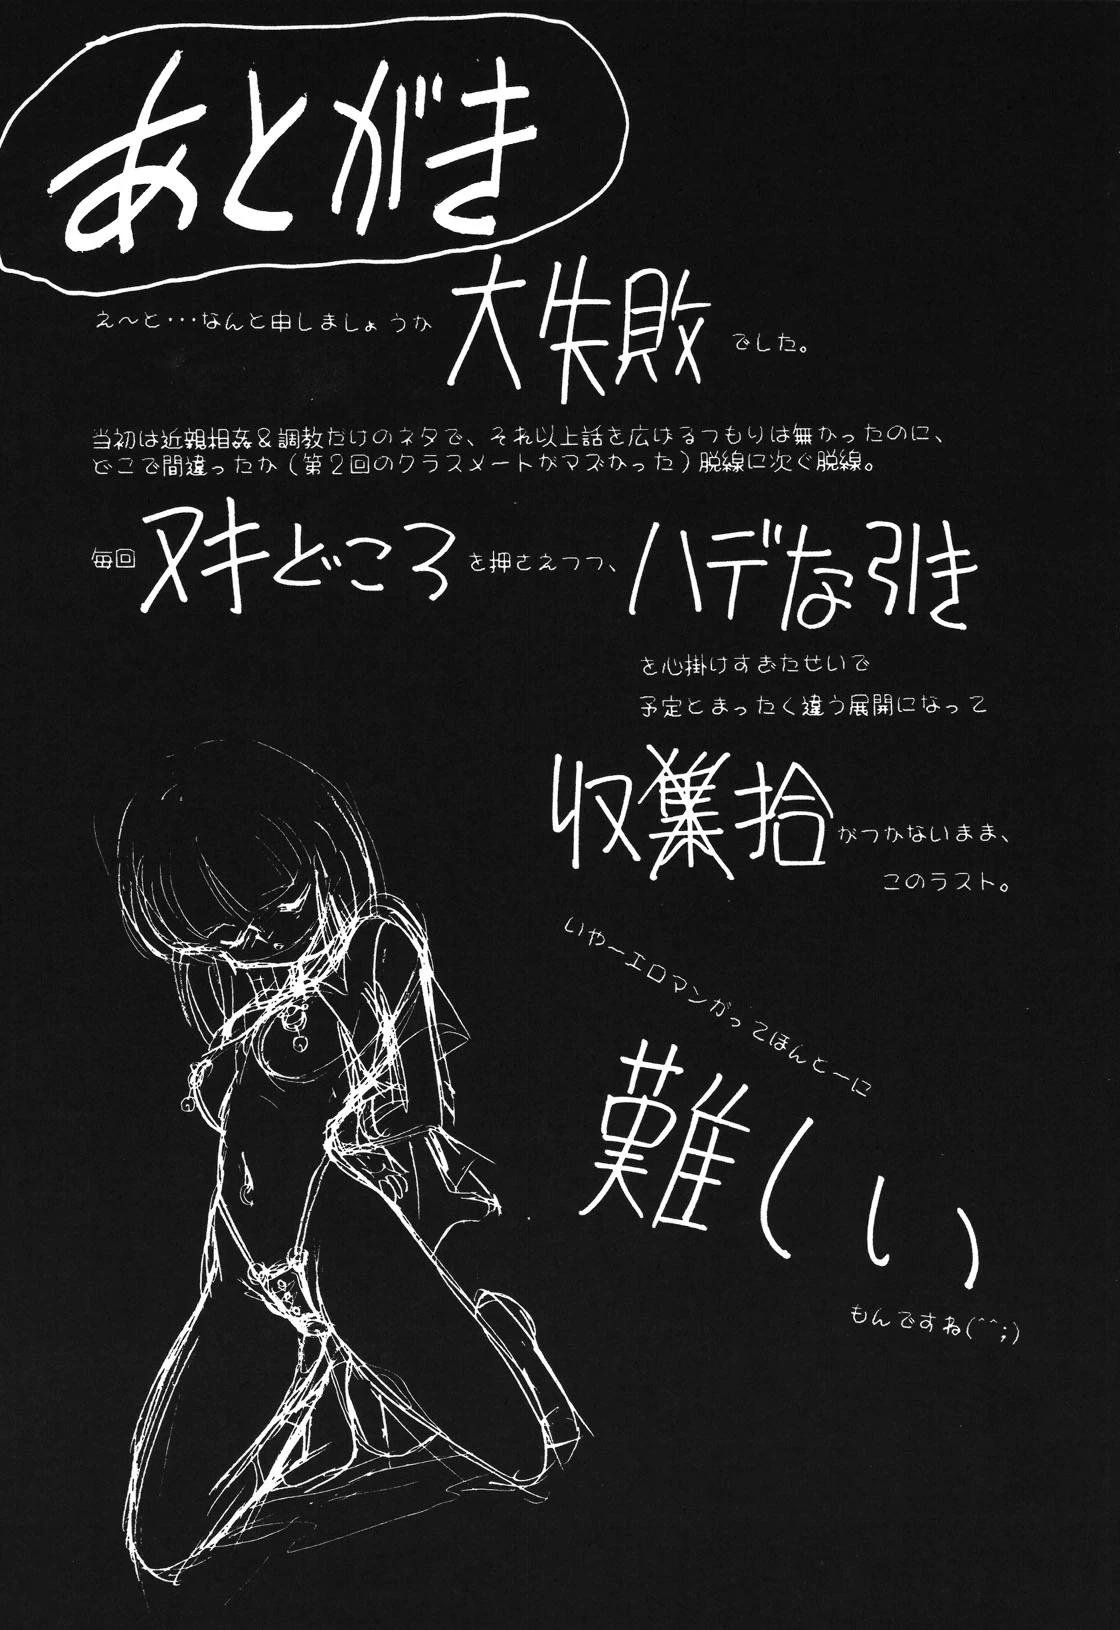 あとがき
え～と・・・なんと申しましょうか
大失敗
でした。
当初は近親相姦&調教だけのネタで、それ以上話を広げるつもりは無かったのに、
どこで間違ったか(第2回のクラスメートがマズかった)脱線に次ぐ脱線。
毎回
ヌキどころ
を押さえつつ、
ハデな引き
を心掛けすぎたせいで
予定とまったく違う展開になって
収集拾
がつかないまま、
このラスト。
いやーエロマンガってほんとーに
難しい
もんですね(^^;)